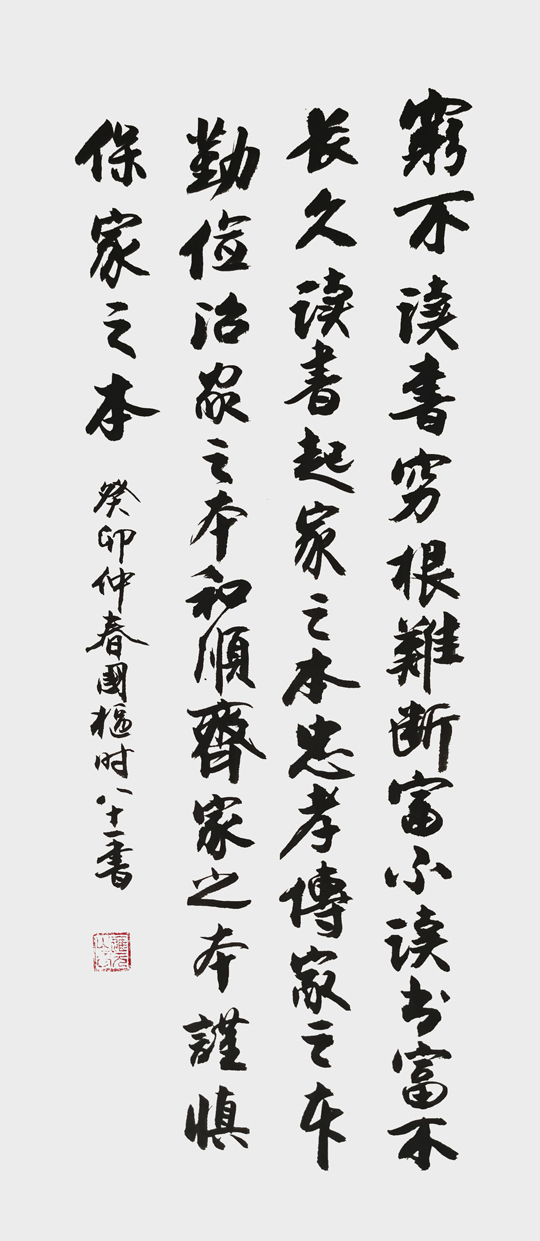 窮不读書穷根難断富不读书富不
长久读書起家之本忠孝傳家之本
勤俭治家之本和順齊家之本謹慎
保家之本
癸卯仲春國樞时八十一書